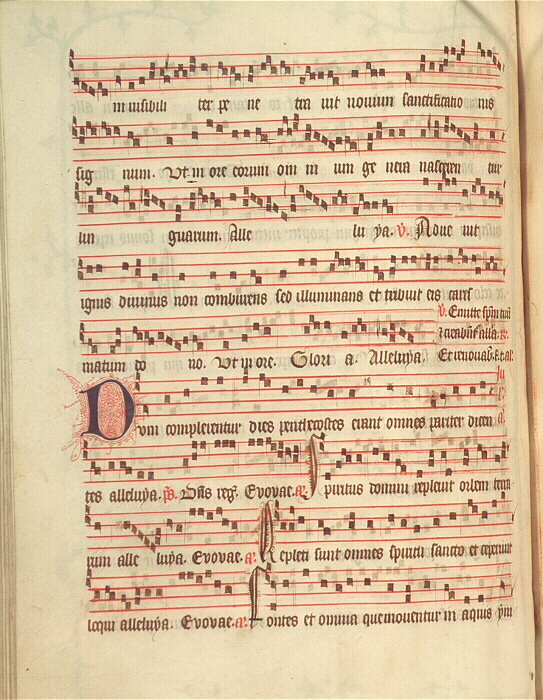 in visibili ter pe ne tra uit nouum sanctificatio nis
sig num. Vt in ore eorum om ni um ge nera nasceren tur
lin guarum. Alle lu ya. v. Adue nit
ignis diuinus non comburens sed illuminans et tribuit eis caris
v. Emitte spm tuũ
matum do no. Vt in ore. Glori a. Alleluya. Et renouab̃
Dum complerentur dies penthecostes erant omnes pariter dicen
tes alleluya. ps. Dñs reg̃. Evovae. añ. Spiritus domini repleuit orbem terra
rum alle luya. Evovae. añ. Repleti sunt omnes spiritu sancto et ceperunt
loqui alleluya. Evovae. añ. Fontes et omnia que mouentur in aquis ẏm